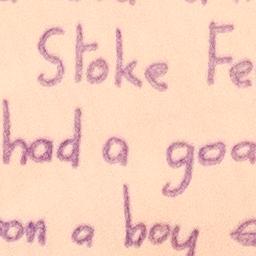 Stoke Fe
had a goa
on a boy